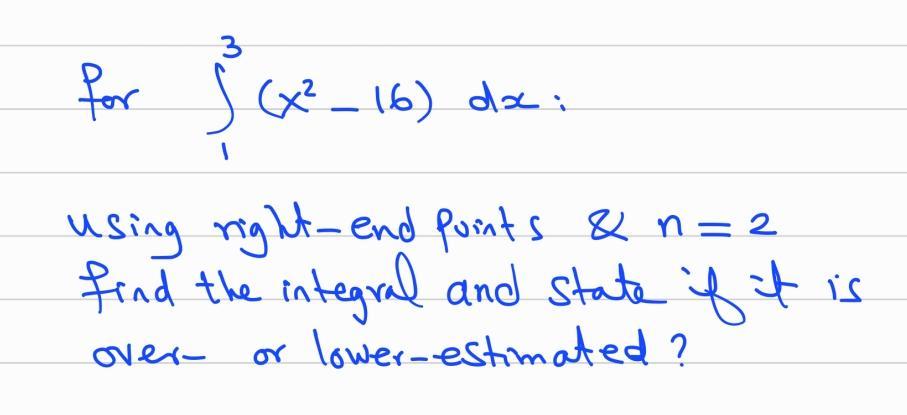 for ∫₁³ (x² – 16) dx :
using right-end points & n = 2
find the integral and state if it is
over- or lower-estimated ?